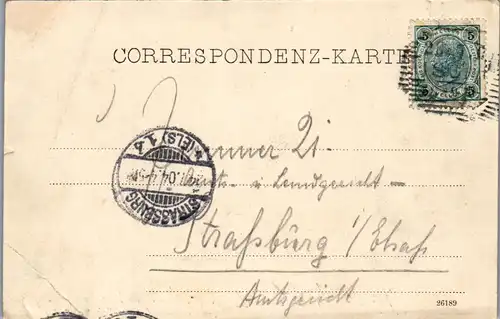 CORRESPONDENZ-KARTE
5 5
5 5
STRASSBURG
(ELS) 1.
Zimmer 21.
Amts- u Landgericht -
Straßburg i/Elsaß
Amtsgericht
26189